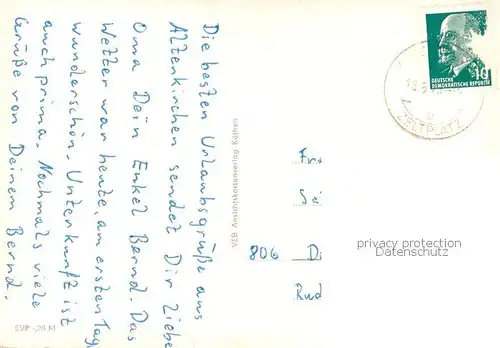 Die besten Urlaubsgrüße aus
Altenkirchen sendet Dir Liebe
Oma Dein Enkel Bernd. Das
Wetter war heute, am ersten Tag,
wunderschön. Unterkunft ist
auch prima. Nochmals viele
Grüße von Deinem Bernd.
VEB Ansichtskartenverlag Köthen
EVP -,20 M
DEUTSCHE
DEMOKRATISCHE REPUBLIK
10
ZELTPLATZ
806 D
Rud
privacy protection
Datenschutz